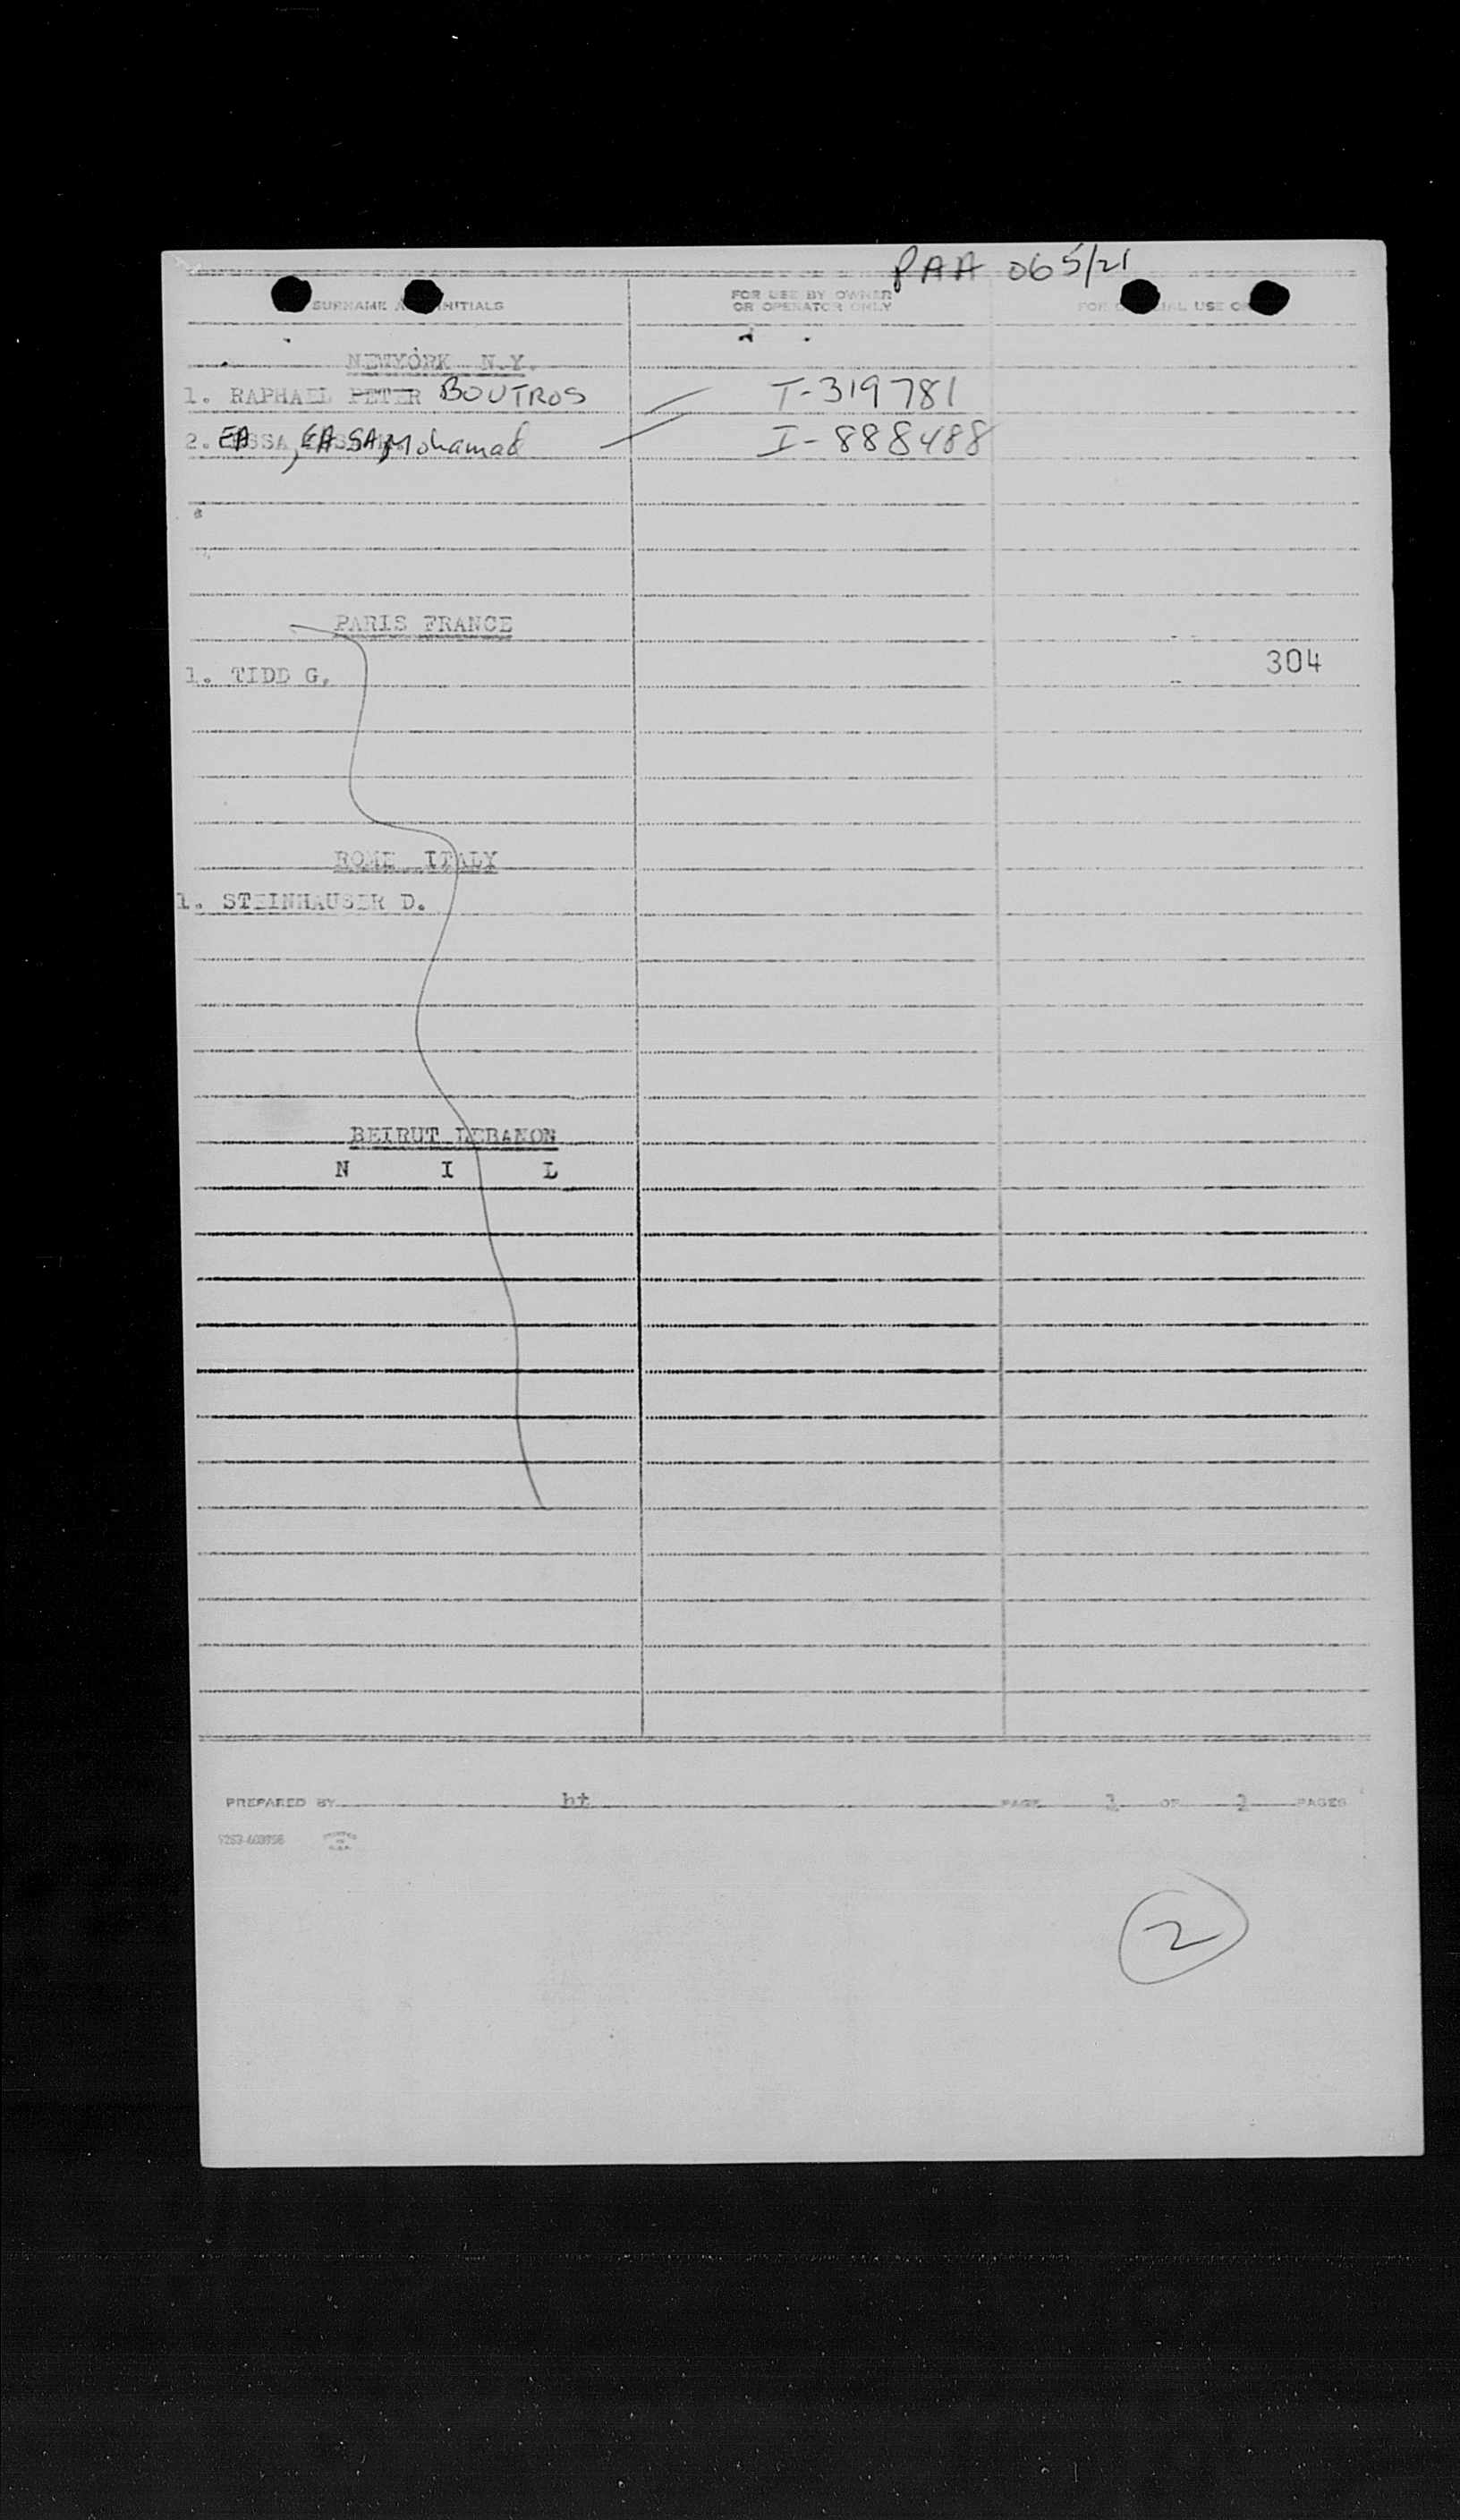 PAA 065/21
SURNAME A INITIALS
FOR USE BY OWNER
OR OPERATOR ONLY
FOR OFFICIAL USE ONLY
NEWYORK N.Y.
1. RAPHAEL PETER BOUTROS T-319781
2. EASSA, EASSA, Mohamad I-888488
PARIS FRANCE
304
1. TIDD G.
ROME ITALY
1. STEINHAUSER D.
BEIRUT LEBANON
N I L
PREPARED BY ht PAGE OF PAGES
PRINTED
IN
U.S.A.
2